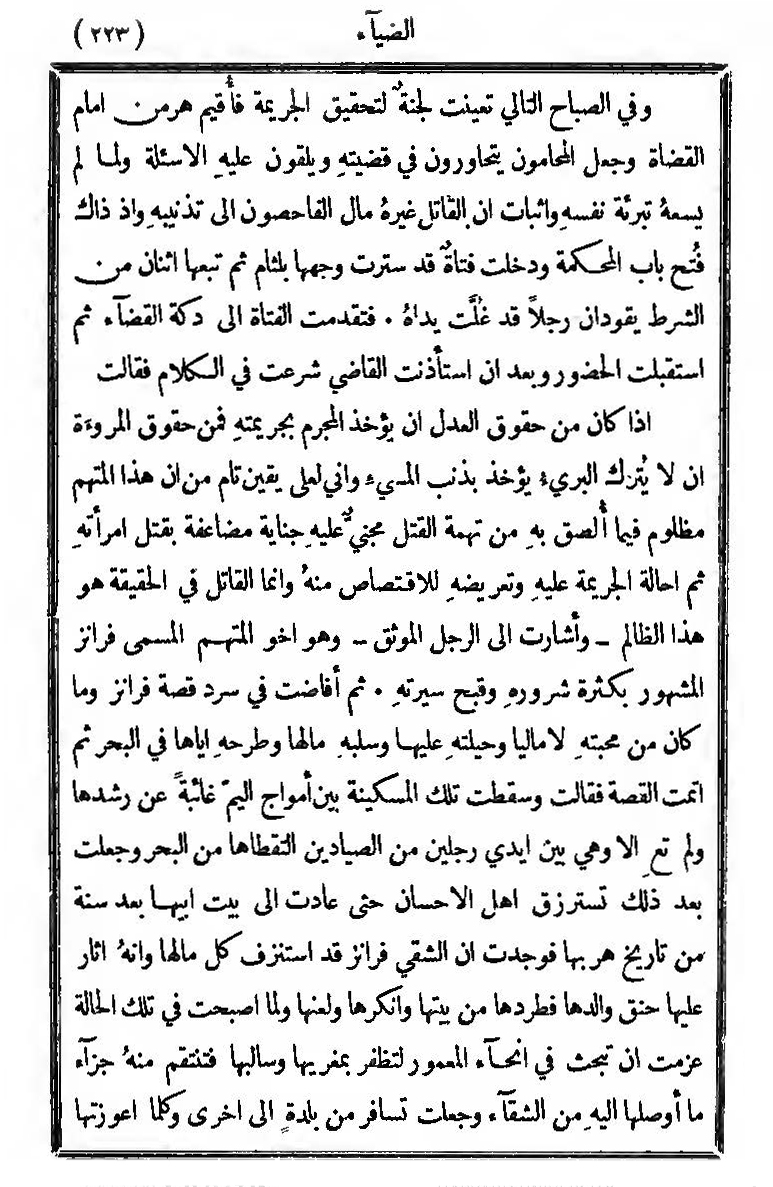 الضيآء
(٢٢٣)
وفي الصباح التالي تعينت لجنةٌ لتحقيق الجريمة فأُقيم هرمن امام
القضاة وجعل المحامون يتحاورون في قضيتهِ ويلقون عليهِ الاسئلة ولما لم
يسعهُ تبرئة نفسهِ واثبات ان القاتل غيرهُ مال الفاحصون الى تذنيبهِ واذ ذاك
فُتح باب المحكمة ودخلت فتاةٌ قد سترت وجهها بلثام ثم تبعها اثنان من
الشرط يقودان رجلاً قد غُلَّت يداهُ . فتقدمت الفتاة الى دكة القضآء ثم
استقبلت الحضور وبعد ان استأذنت القاضي شرعت في الكلام فقالت
اذا كان من حقوق العدل ان يؤخذ المجرم بجريمتهِ فمن حقوق المروءة
ان لا يُترك البريء يؤخذ بذنب المسيء واني لعلى يقين تام من ان هذا المتهم
مظلوم فيما أُلصق بهِ من تهمة القتل مجنيٌّ عليهِ جناية مضاعفة بقتل امرأتهِ
ثم احالة الجريمة عليهِ وتعريضهِ للاقتصاص منهُ وانما القاتل في الحقيقة هو
هذا الظالم ـ وأشارت الى الرجل الموثق ـ وهو اخو المتهم المسمى فرانز
المشهور بكثرة شرورهِ وقبح سيرتهِ . ثم أفاضت في سرد قصة فرانز وما
كان من محبتهِ لاماليا وحيلتهِ عليها وسلبهِ مالها وطرحهِ اياها في البحر ثم
اتمت القصة فقالت وسقطت تلك المسكينة بين أمواج اليمّ غائبةً عن رشدها
ولم تعِ الا وهي بين ايدي رجلين من الصيادين التقطاها من البحر وجعلت
بعد ذلك تسترزق اهل الاحسان حتى عادت الى بيت ابيها بعد سنة
من تاريخ هربها فوجدت ان الشقي فرانز قد استنزف كل مالها وانهُ اثار
عليها حنق والدها فطردها من بيتها وانكرها ولعنها ولما اصبحت في تلك الحالة
عزمت ان تبحث في انحآء المعمور لتظفر بمغريها وسالبها فتنتقم منهُ جزآء
ما أوصلها اليهِ من الشقآء وجعلت تسافر من بلدةٍ الى اخرى وكلما اعوزتها